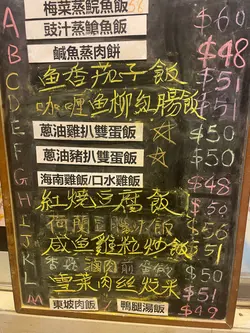 A 梅菜蒸鯇魚飯 $60
豉汁蒸鱠魚飯
B 鹹魚蒸肉餅 $48
C 鱼香茄子飯 $51
D 咖喱鱼柳红腸飯 $51
E 蔥油雞扒雙蛋飯 $50
F 蔥油豬扒雙蛋飯 $50
G 海南雞飯/口水雞飯 $48
H 紅燒豆腐飯 $50
I 荷蘭豆 飯 $56
J 咸鱼雞粒炒飯 $51
K 香菇滷肉煎蛋飯 $50
L 雪菜肉丝炆米 $51
M 東坡肉飯/鴨腿湯飯 $49